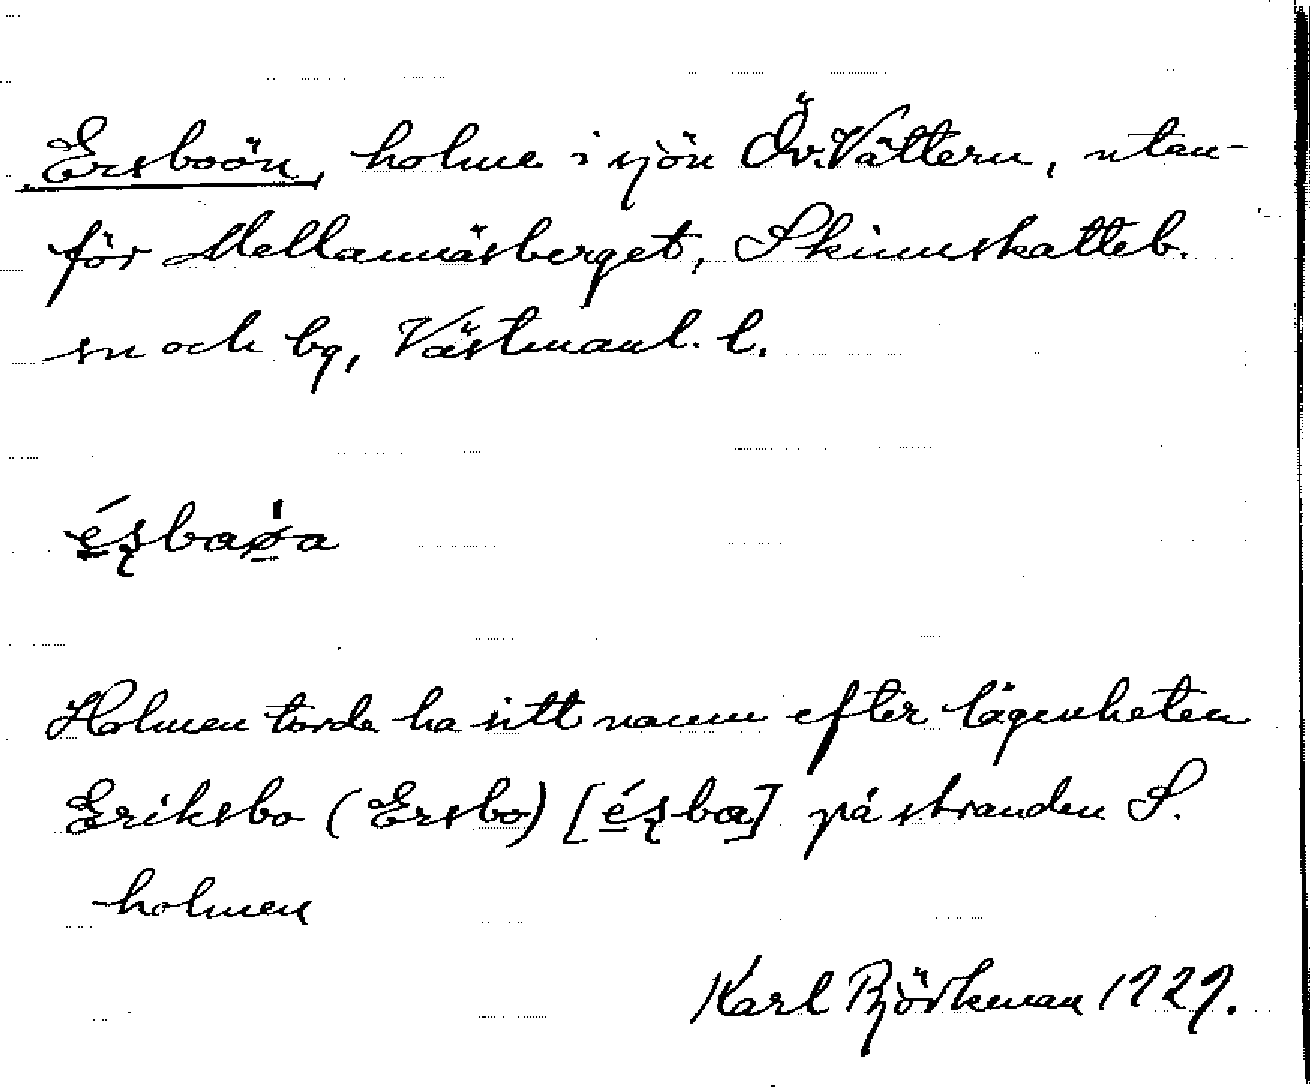 Ersboön, holme i sjön Öv. Vättern, utan-
för Mellannäsberget, Skinnskatteb.
sn och bg, Västmanl. l.
é̱ʂbaø̱̍a
Holmen torde ha sitt namn efter lägenheten
Eriksbo (Ersbo) [é̱ʂba] på stranden S.
holmen
Karl Björkman 1929.